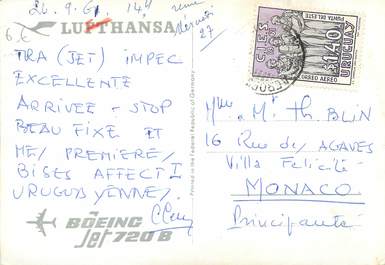 26.9.61 14h
LUFTHANSA
6€
27
TRA (JET) IMPEC
EXCELLENTE
ARRIVEE - STOP
BEAU FIXE ET
MES PREMIERES
BISES AFFECT
URUGUAYENNES.
BOEING
Jet 720B
Printed in the Federal Republic of Germany
C.I.E.S.
PUNTA DEL ESTE
$1.40
URUGUAY
CORREO AEREO
Mme M. Th. BLIN
16 Rue des AGAVES
Villa Félicité
MONACO
Principauté